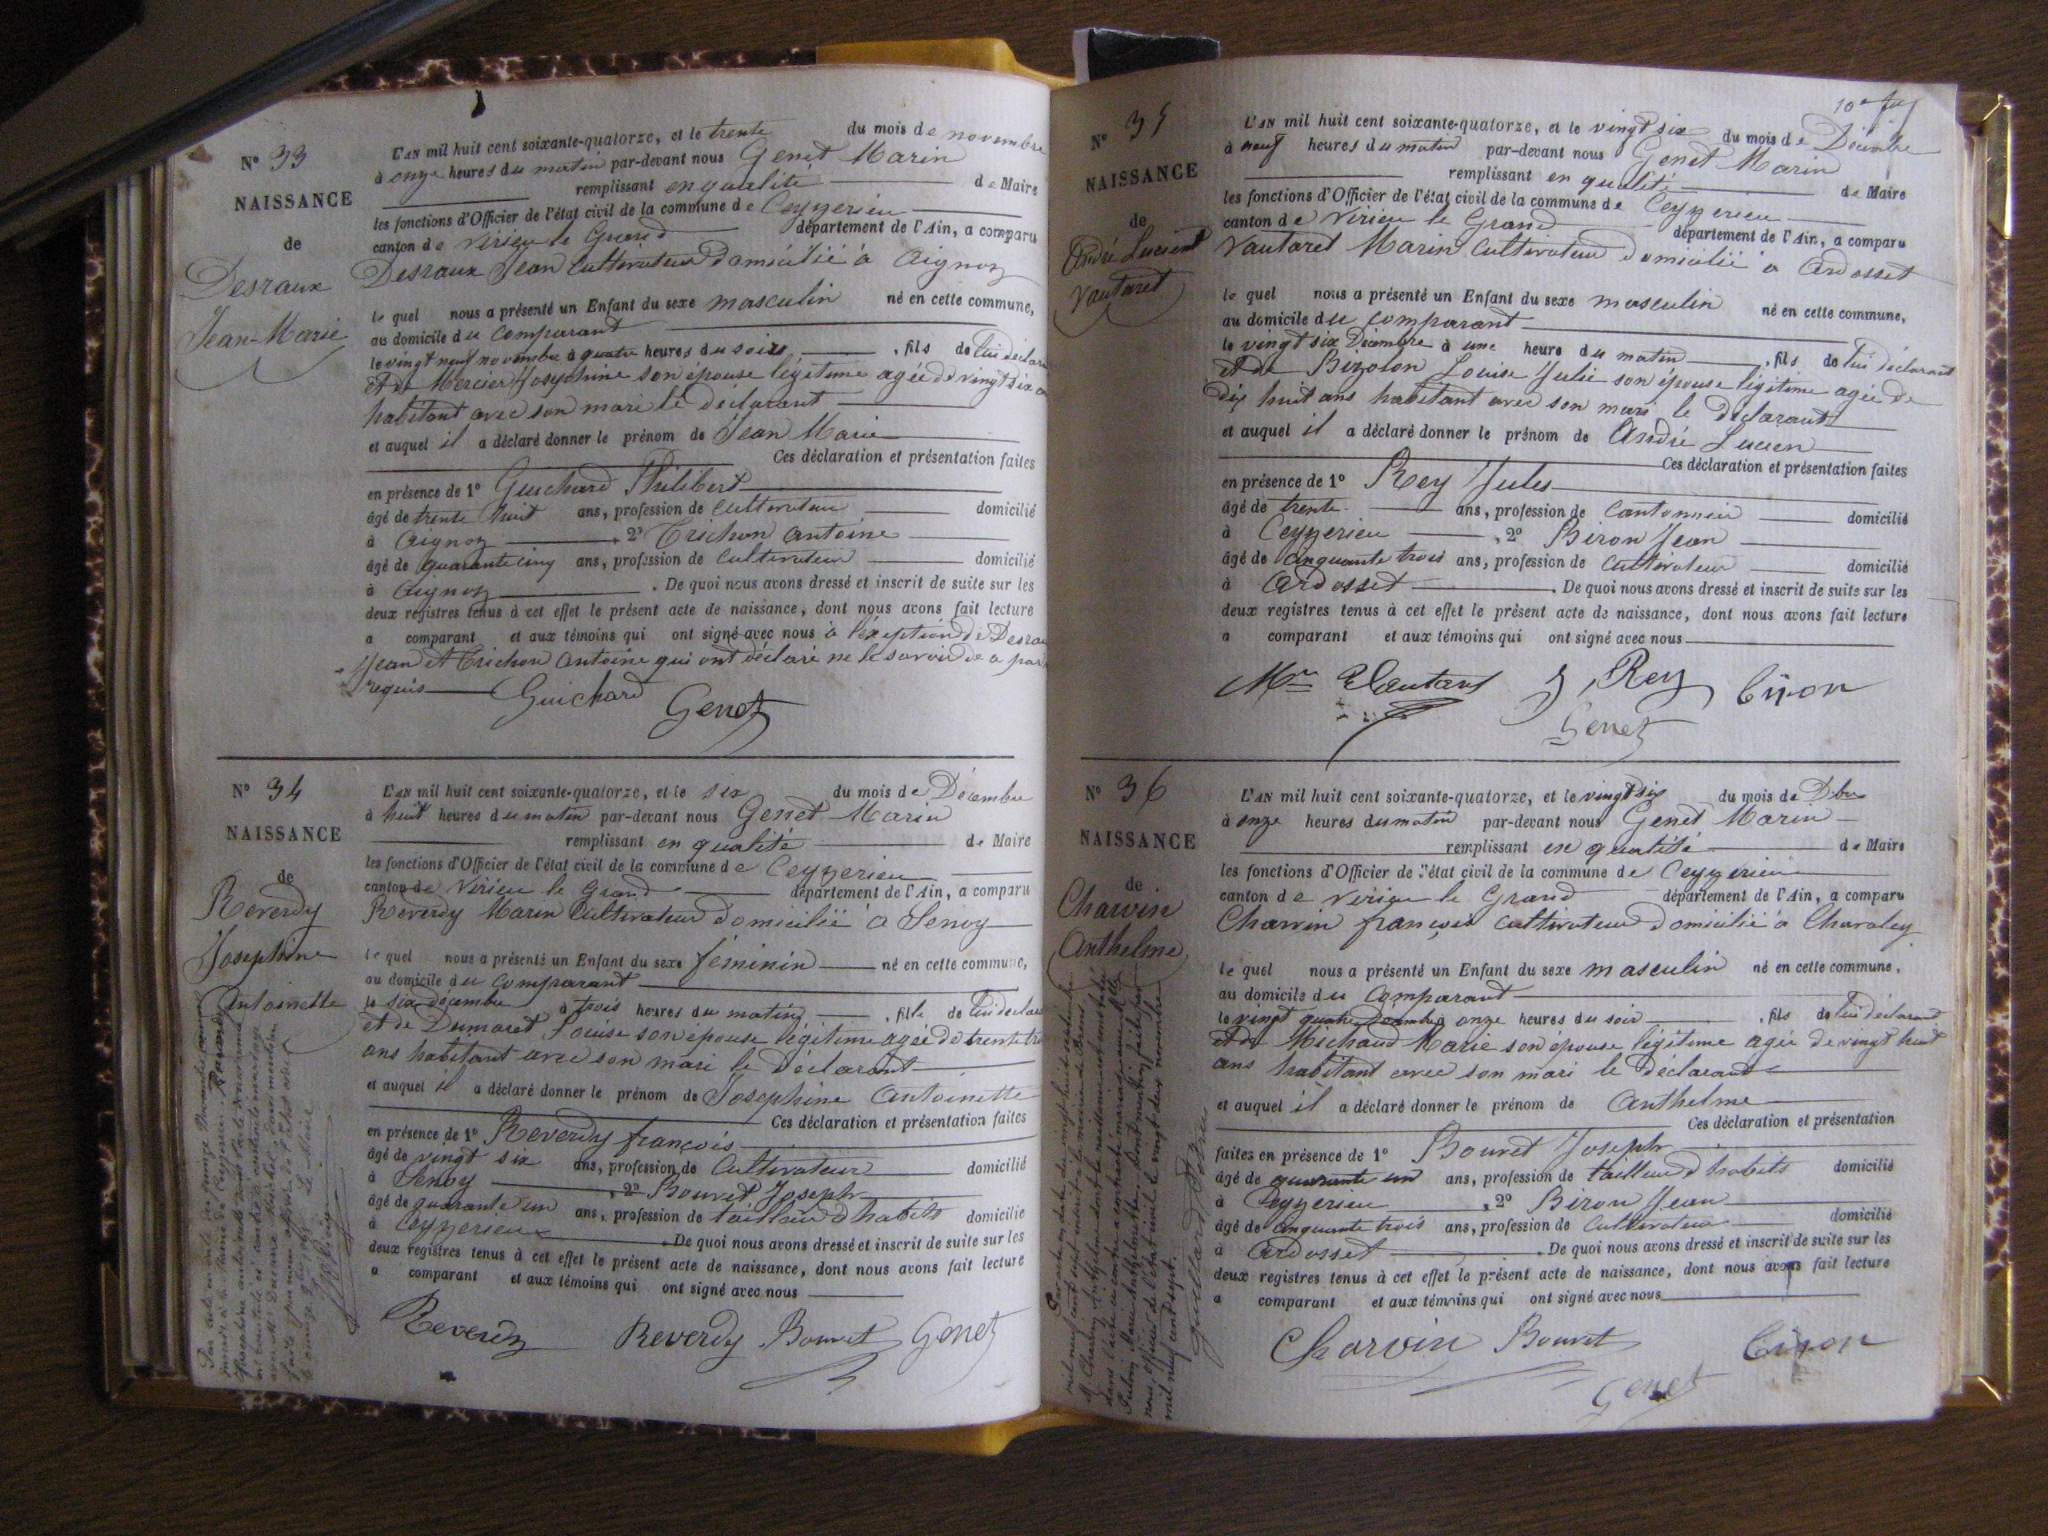 N° 33
NAISSANCE
de
Desraux
Jean-Marie
L'AN mil huit cent soixante-quatorze, et le trente du mois de novembre
à onze heures du matin par-devant nous Genet Marin
remplissant en qualité de Maire
les fonctions d'Officier de l'état civil de la commune de Ceyzerieu
canton de Virieu le Grand département de l'Ain, a comparu
Desraux Jean Cultivateur domicilié à Aignoz
le quel nous a présenté un Enfant du sexe masculin né en cette commune,
au domicile du comparant
le vingt neuf novembre à quatre heures du soir, fils de lui déclarant
et de Mercier Josephine son épouse légitime agée de vingt six
habitant avec son mari le déclarant
et auquel il a déclaré donner le prénom de Jean Marie
Ces déclaration et présentation faites
en présence de 1° Guichard Philibert
âgé de trente huit ans, profession de cultivateur domicilié
à Aignoz, 2° Trichon Antoine
âgé de quarante cinq ans, profession de cultivateur domicilié
à Aignoz. De quoi nous avons dressé et inscrit de suite sur les
deux registres tenus à cet effet le présent acte de naissance, dont nous avons fait lecture
a comparant et aux témoins qui ont signé avec nous à l'exception de Desraux
Jean et Trichon Antoine qui ont déclaré ne le savoir de a
requis Guichard Genet
N° 34
NAISSANCE
de
Reverdy
Josephine
Antoinette
L'AN mil huit cent soixante-quatorze, et le six du mois de Décembre
à huit heures du matin par-devant nous Genet Marin
remplissant en qualité de Maire
les fonctions d'Officier de l'état civil de la commune de Ceyzerieu
canton de Virieu le Grand département de l'Ain, a comparu
Reverdy Marin Cultivateur domicilié à Senoy
le quel nous a présenté un Enfant du sexe féminin né en cette commune,
au domicile du comparant
le six décembre à trois heures du matin, fille de lui déclarant
et de Dumaret Louise son épouse légitime agée de trente
ans habitant avec son mari le Déclarant
et auquel il a déclaré donner le prénom de Josephine Antoinette
Ces déclaration et présentation faites
en présence de 1° Reverdy françois
âgé de vingt six ans, profession de Cultivateur domicilié
à Senoy, 2° Bouvet Joseph
âgé de quarante un ans, profession de tailleur d'habits domicilié
à Ceyzerieu. De quoi nous avons dressé et inscrit de suite sur les
deux registres tenus à cet effet le présent acte de naissance, dont nous avons fait lecture
a comparant et aux témoins qui ont signé avec nous
Reverdy Reverdy Bouvet Genet
10e
N° 35
NAISSANCE
de
André Lucien
Vautaret
L'AN mil huit cent soixante-quatorze, et le vingt six du mois de Décembre
à neuf heures du matin par-devant nous Genet Marin
remplissant en qualité de Maire
les fonctions d'Officier de l'état civil de la commune de Ceyzerieu
canton de Virieu le Grand département de l'Ain, a comparu
Vautaret Marin Cultivateur domicilié à Ardosset
le quel nous a présenté un Enfant du sexe masculin né en cette commune,
au domicile du comparant
le vingt six Décembre à une heure du matin, fils de lui déclarant
et de Bizolon Louise Julie son épouse légitime agée de
dix huit ans habitant avec son mari le déclarant
et auquel il a déclaré donner le prénom de André Lucien
Ces déclaration et présentation faites
en présence de 1° Rey Jules
âgé de trente ans, profession de Cantonnier domicilié
à Ceyzerieu, 2° Biron Jean
âgé de cinquante trois ans, profession de cultivateur domicilié
à Ardosset. De quoi nous avons dressé et inscrit de suite sur les
deux registres tenus à cet effet le présent acte de naissance, dont nous avons fait lecture
a comparant et aux témoins qui ont signé avec nous
Mrin Vautaret J, Rey Biron
Genet
N° 36
NAISSANCE
de
Charvin
Anthelme
L'AN mil huit cent soixante-quatorze, et le vingt six du mois de Dbre
à onze heures du matin par-devant nous Genet Marin
remplissant en qualité de Maire
les fonctions d'Officier de l'état civil de la commune de Ceyzerieu
canton de Virieu le Grand département de l'Ain, a comparu
Charvin françois cultivateur domicilié à Chavoley
le quel nous a présenté un Enfant du sexe masculin né en cette commune,
au domicile du comparant
le vingt quatre Décembre à onze heures du soir, fils de lui déclarant
et de Michaud Marie son épouse légitime agée de vingt huit
ans habitant avec son mari le déclarant
et auquel il a déclaré donner le prénom de Anthelme
Ces déclaration et présentation
faites en présence de 1° Bouvet Joseph
âgé de quarante un ans, profession de tailleur d'habits domicilié
à Ceyzerieu, 2° Biron Jean
âgé de cinquante trois ans, profession de cultivateur domicilié
à Ardosset. De quoi nous avons dressé et inscrit de suite sur les
deux registres tenus à cet effet le présent acte de naissance, dont nous avons fait lecture
a comparant et aux témoins qui ont signé avec nous
Charvin Bouvet Biron
Genet